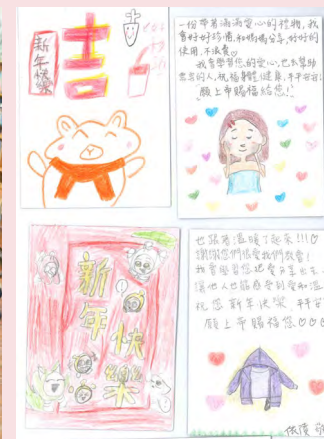 新年快樂
吉
一份帶著滿滿愛心的禮物,我
會好好珍惜,和媽媽分享,好好的
使用,不浪費♡
我會學習您的愛心,也去幫助
的人,祝福身體健康,平平安安
願上帝賜福給您!
新年快樂
也跟著溫暖了起來!!!♡
謝謝您們信愛我們教會!
我會學習您把愛分享出去,
讓他人也能感受到愛和溫
祝您新年快樂 平安
願上帝賜福您♡♡♡